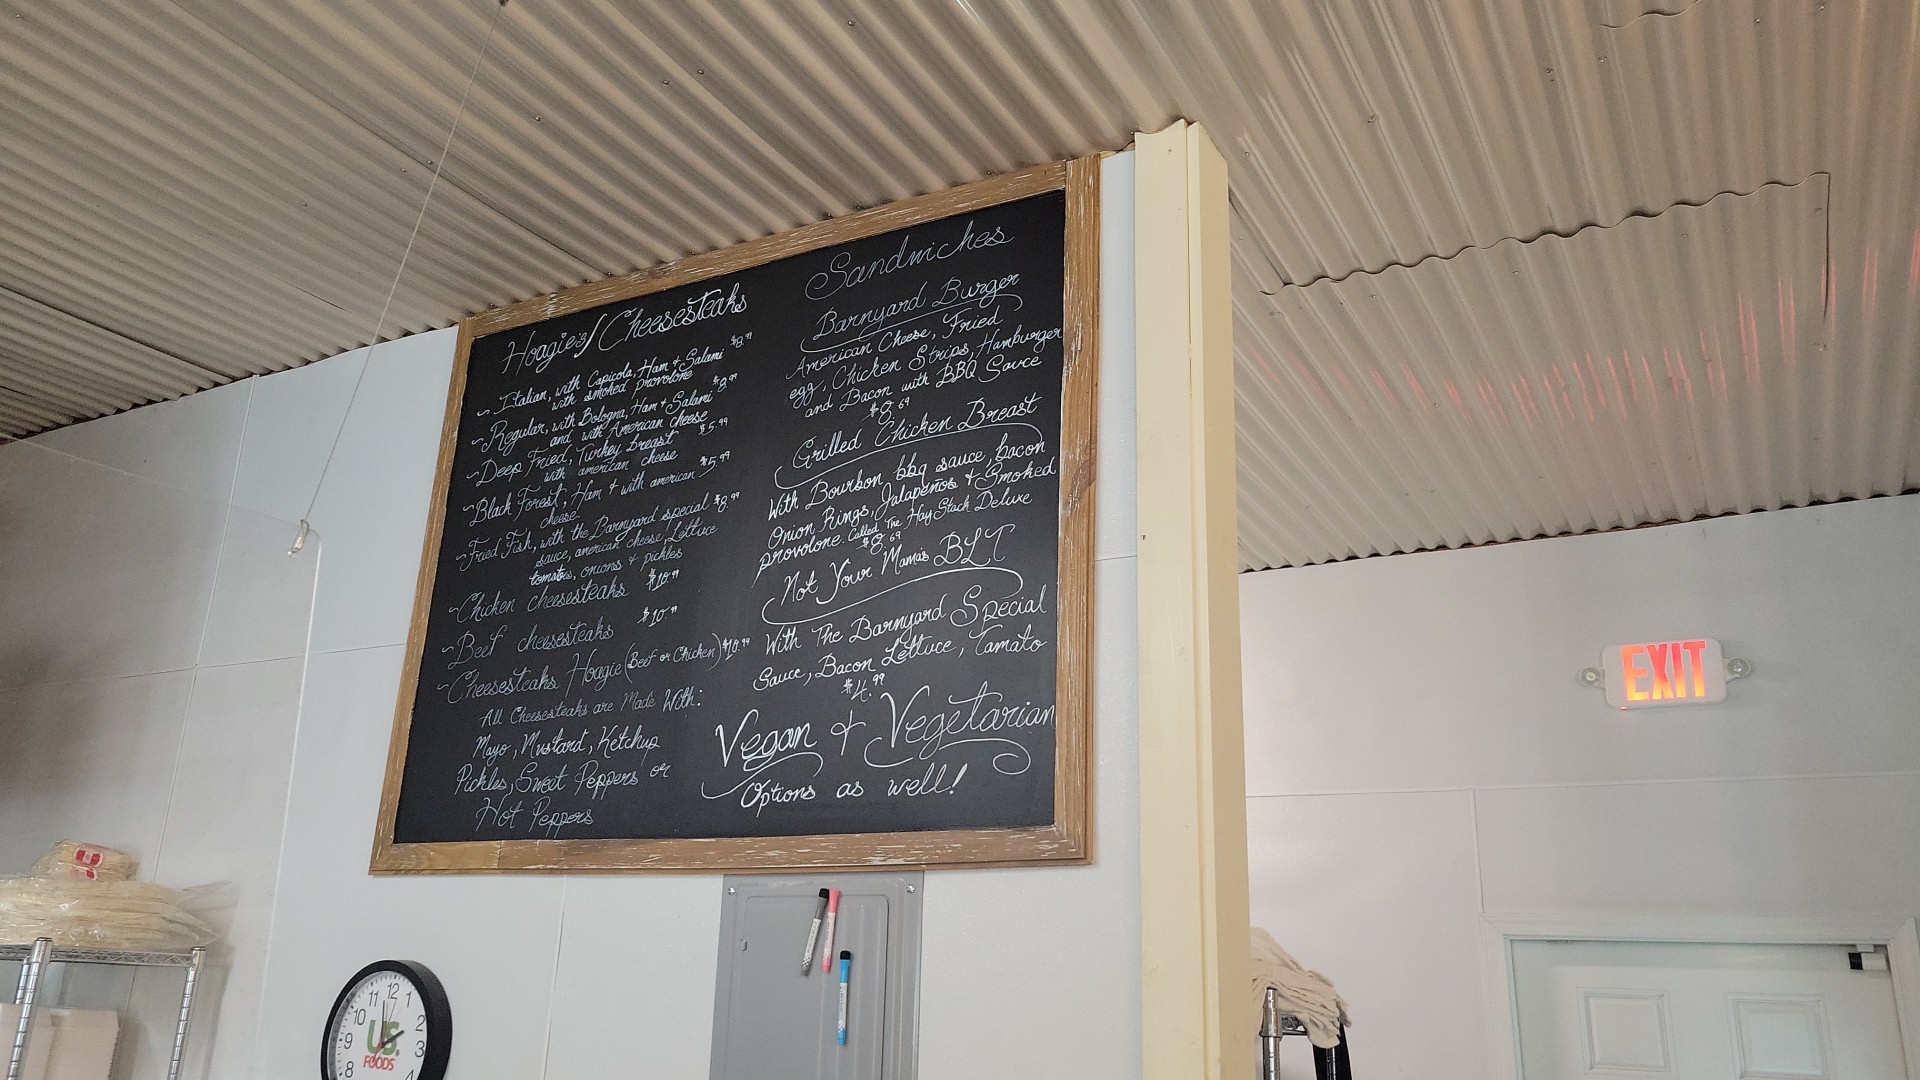 Hoagie's/Cheesesteaks
~ Italian, with Capicola, Ham & Salami $8.99
with smoked provolone
~ Regular, with Bologna, Ham & Salami $8.99
and with American cheese
~ Deep Fried, Turkey breast $5.99
with american cheese
~ Black Forest, Ham & with american $5.99
cheese
~ Fried Fish, with the Barnyard special $8.99
sauce, american cheese, Lettuce
tomatos, onions & pickles
~ Chicken cheesesteaks $10.99
~ Beef cheesesteaks $10.99
~ Cheesesteaks Hoagie (Beef or Chicken) $10.99
All Cheesesteaks are Made With:
Mayo, Mustard, Ketchup
Pickles, Sweet Peppers or
Hot Peppers
Sandwiches
Barnyard Burger
American Cheese, Fried
egg, Chicken Strips, Hamburger
and Bacon with BBQ Sauce
$8.69
Grilled Chicken Breast
With Bourbon bbq sauce, bacon
Onion Rings, Jalapeños & Smoked
provolone. Called The Hay Stack Deluxe
$8.69
Not Your Mama's BLT
With The Barnyard Special
Sauce, Bacon Lettuce, Tamato
$4.99
Vegan & Vegetarian
Options as well!
EXIT
11 12 1
10 2
9 3
8 4
US.
FOODS